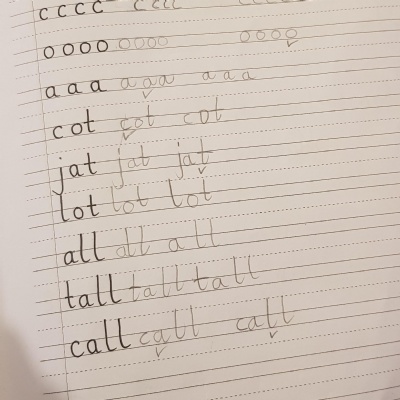 c c c c c c c c c c c c
o o o o o o o o o o o o
a a a a a a a a a
cot cot cot
jat jat jat
lot lot lot
all all all
tall tall tall
call call call